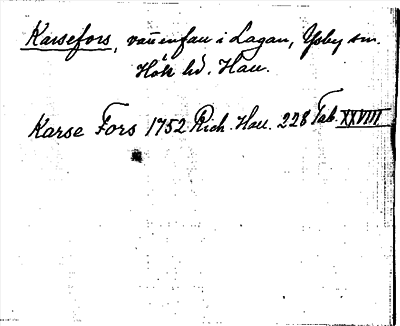 Karsefors, vattenfall i Lagan, Ysby sn.
Hök hd. Hall.
Karse Fors 1752 Rich. Hall. 228 Tab. XXVIII